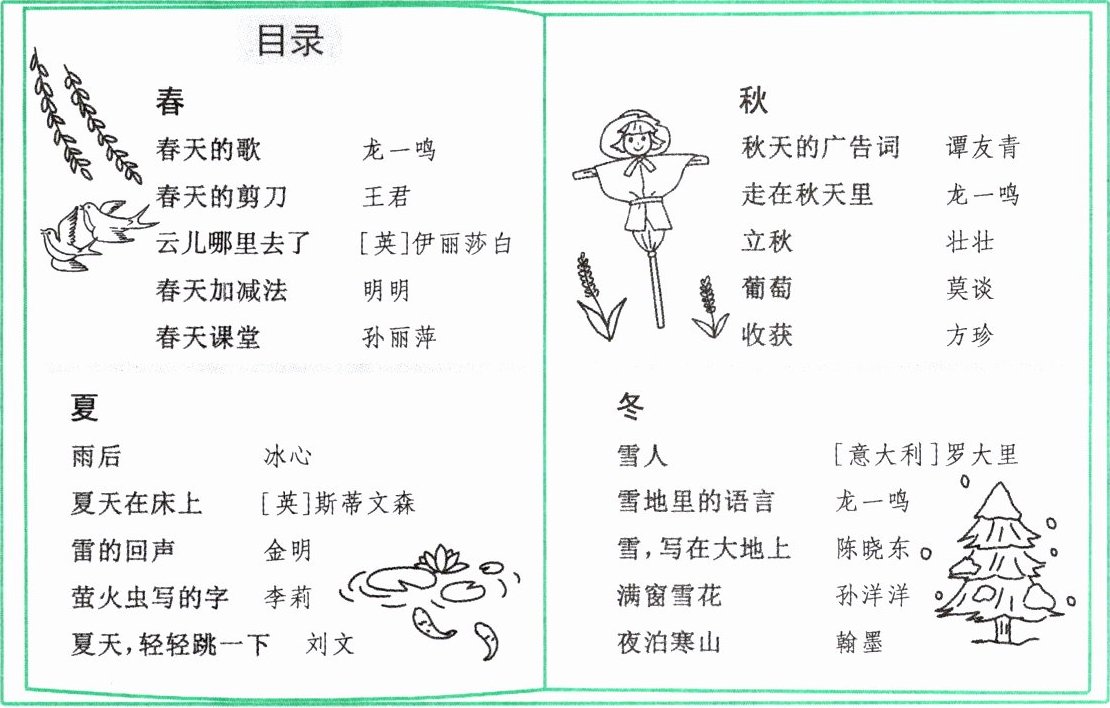 目录
春
春天的歌 龙一鸣
春天的剪刀 王君
云儿哪里去了 [英]伊丽莎白
春天加减法 明明
春天课堂 孙丽萍
夏
雨后 冰心
夏天在床上 [英]斯蒂文森
雷的回声 金明
萤火虫写的字 李莉
夏天,轻轻跳一下 刘文
秋
秋天的广告词 谭友青
走在秋天里 龙一鸣
立秋 壮壮
葡萄 莫谈
收获 方珍
冬
雪人 [意大利]罗大里
雪地里的语言 龙一鸣
雪,写在大地上 陈晓东
满窗雪花 孙洋洋
夜泊寒山 翰墨